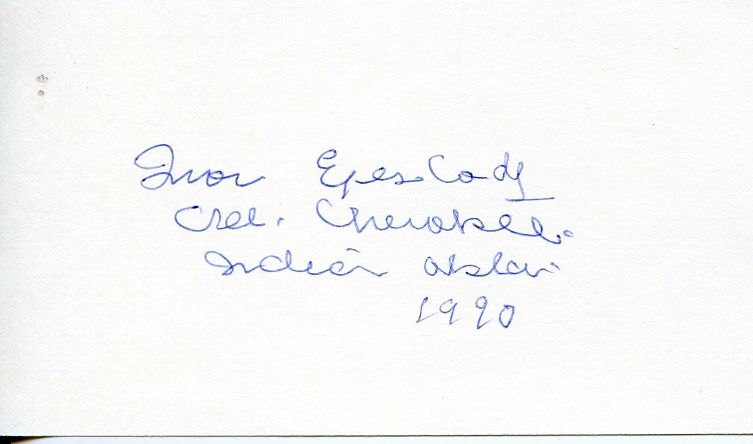 Iron Eyes Cody
Cree. Cherokee.
Indian
1990